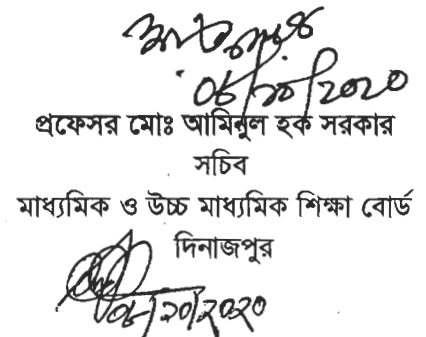 ০৮/১০/২০২০
প্রফেসর মোঃ আমিনুল হক সরকার
সচিব
মাধ্যমিক ও উচ্চ মাধ্যমিক শিক্ষা বোর্ড
দিনাজপুর
০৮/১০/২০২০